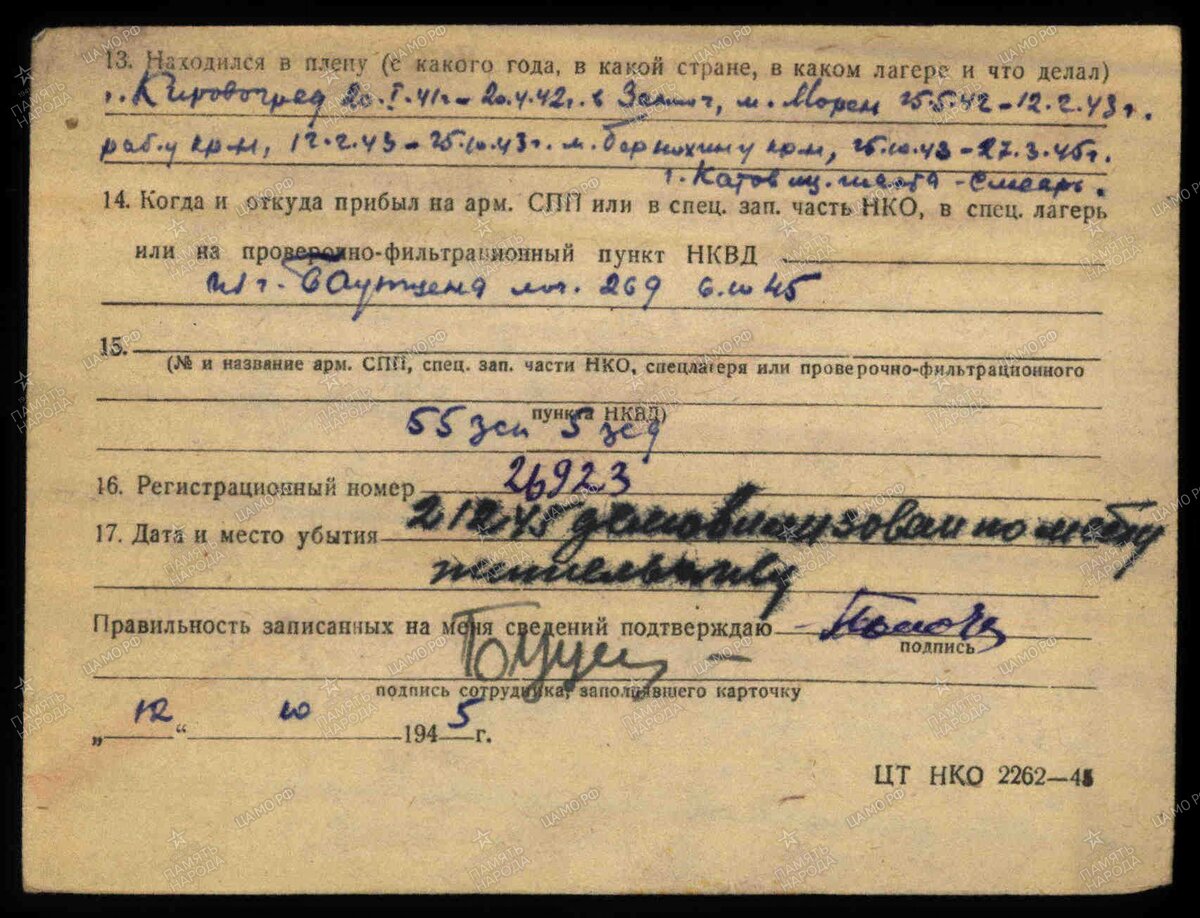 13. Находился в плену (с какого года, в какой стране, в каком лагере и что делал)
г. Кировоград 20. 41г – 20.4.42г. в м. Морен 15.5.42 – 12.2.43г.
раб у крм, 12.2.43 – 25.10.43г. м. у крм, 25.10.43 – 27.3.45г.
г. Катовиц. шахта
14. Когда и откуда прибыл на арм. СПП или в спец. зап. часть НКО, в спец. лагерь
или на проверочно-фильтрационный пункт НКВД
из г. Баутцена лаг. 269 6.10 45
15.
(№ и название арм. СПП, спец. зап. части НКО, спецлагеря или проверочно-фильтрационного
пункта НКВД)
55 зсп 5 зсд
16. Регистрационный номер 26923
17. Дата и место убытия 21245 демобилизован по месту
жительству
Правильность записанных на меня сведений подтверждаю
подпись
подпись сотрудника, заполнявшего карточку
„ 12 “ 10 1945 г.
ЦТ НКО 2262—45